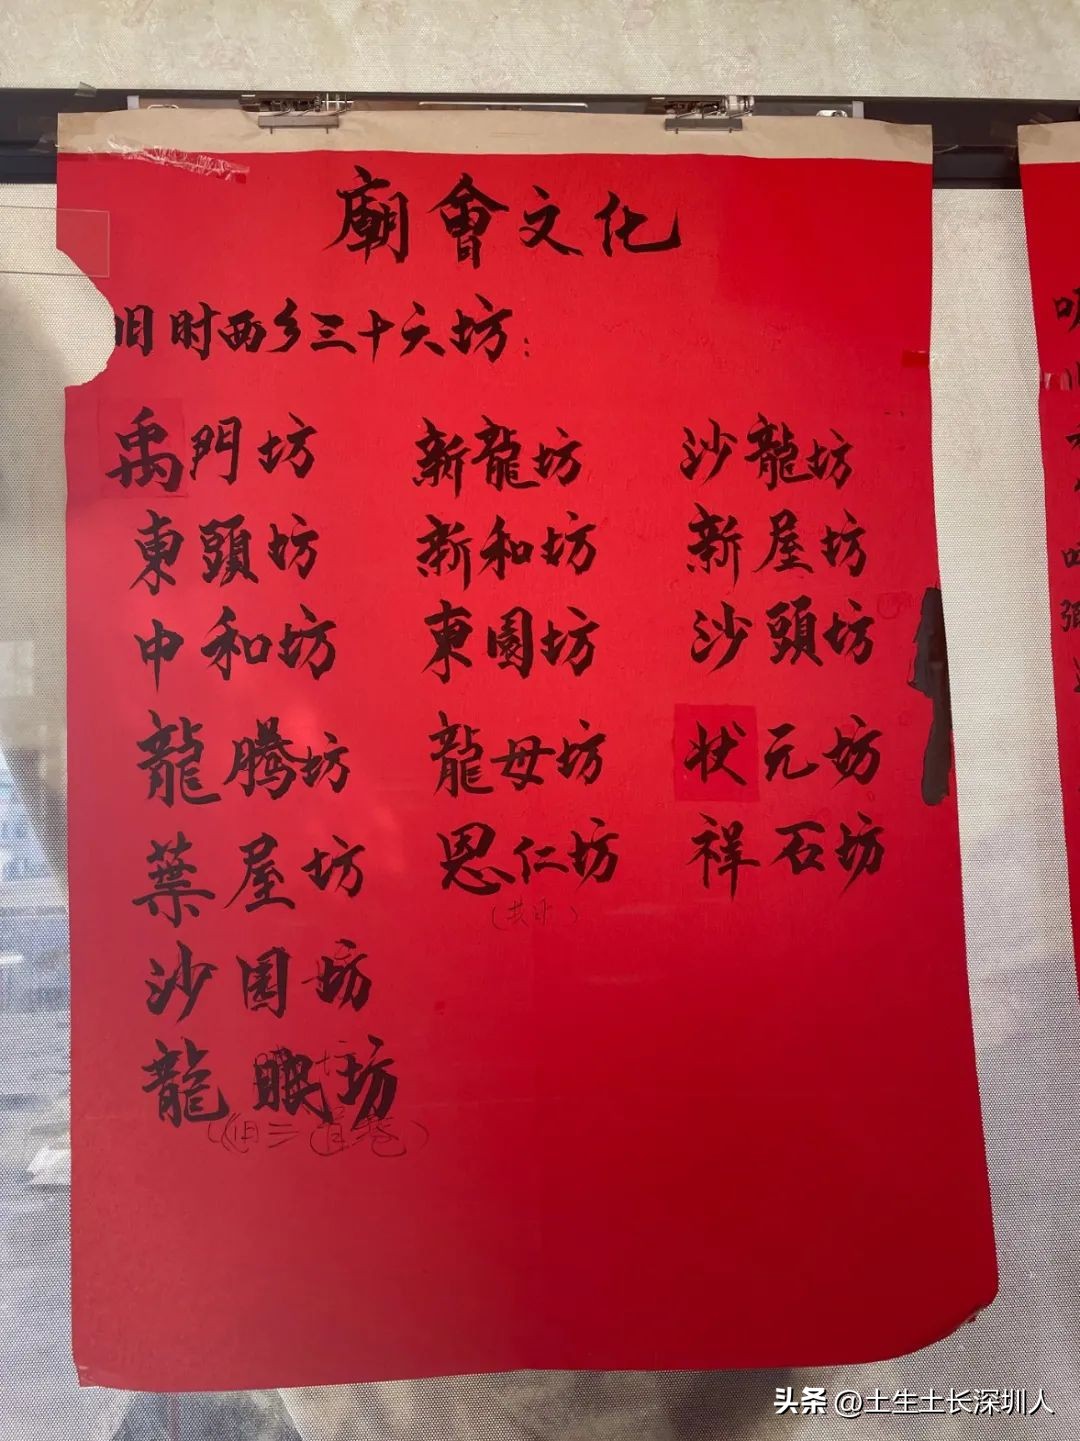 廟會文化
旧时西乡三十六坊：
禹門坊 新龍坊 沙龍坊
東頭坊 新和坊 新屋坊
中和坊 東園坊 沙頭坊
龍騰坊 龍母坊 状元坊
葉屋坊 恩仁坊 祥石坊
沙园坊
龍眼坊
头条 @土生土长深圳人